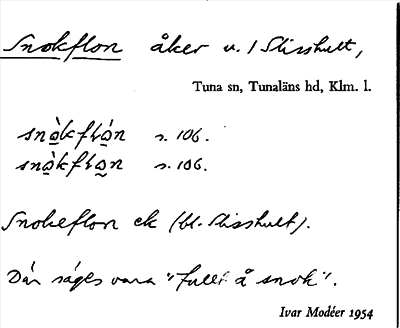 Snokflon åker u. / Slisshult,
Tuna sn, Tunaläns hd, Klm. l.
snòkflòn s. 106.
snòkflon s. 106.
Snokeflon ek (bl. Slisshult).
Där säges vara "fullt å snok".
Ivar Modéer 1954